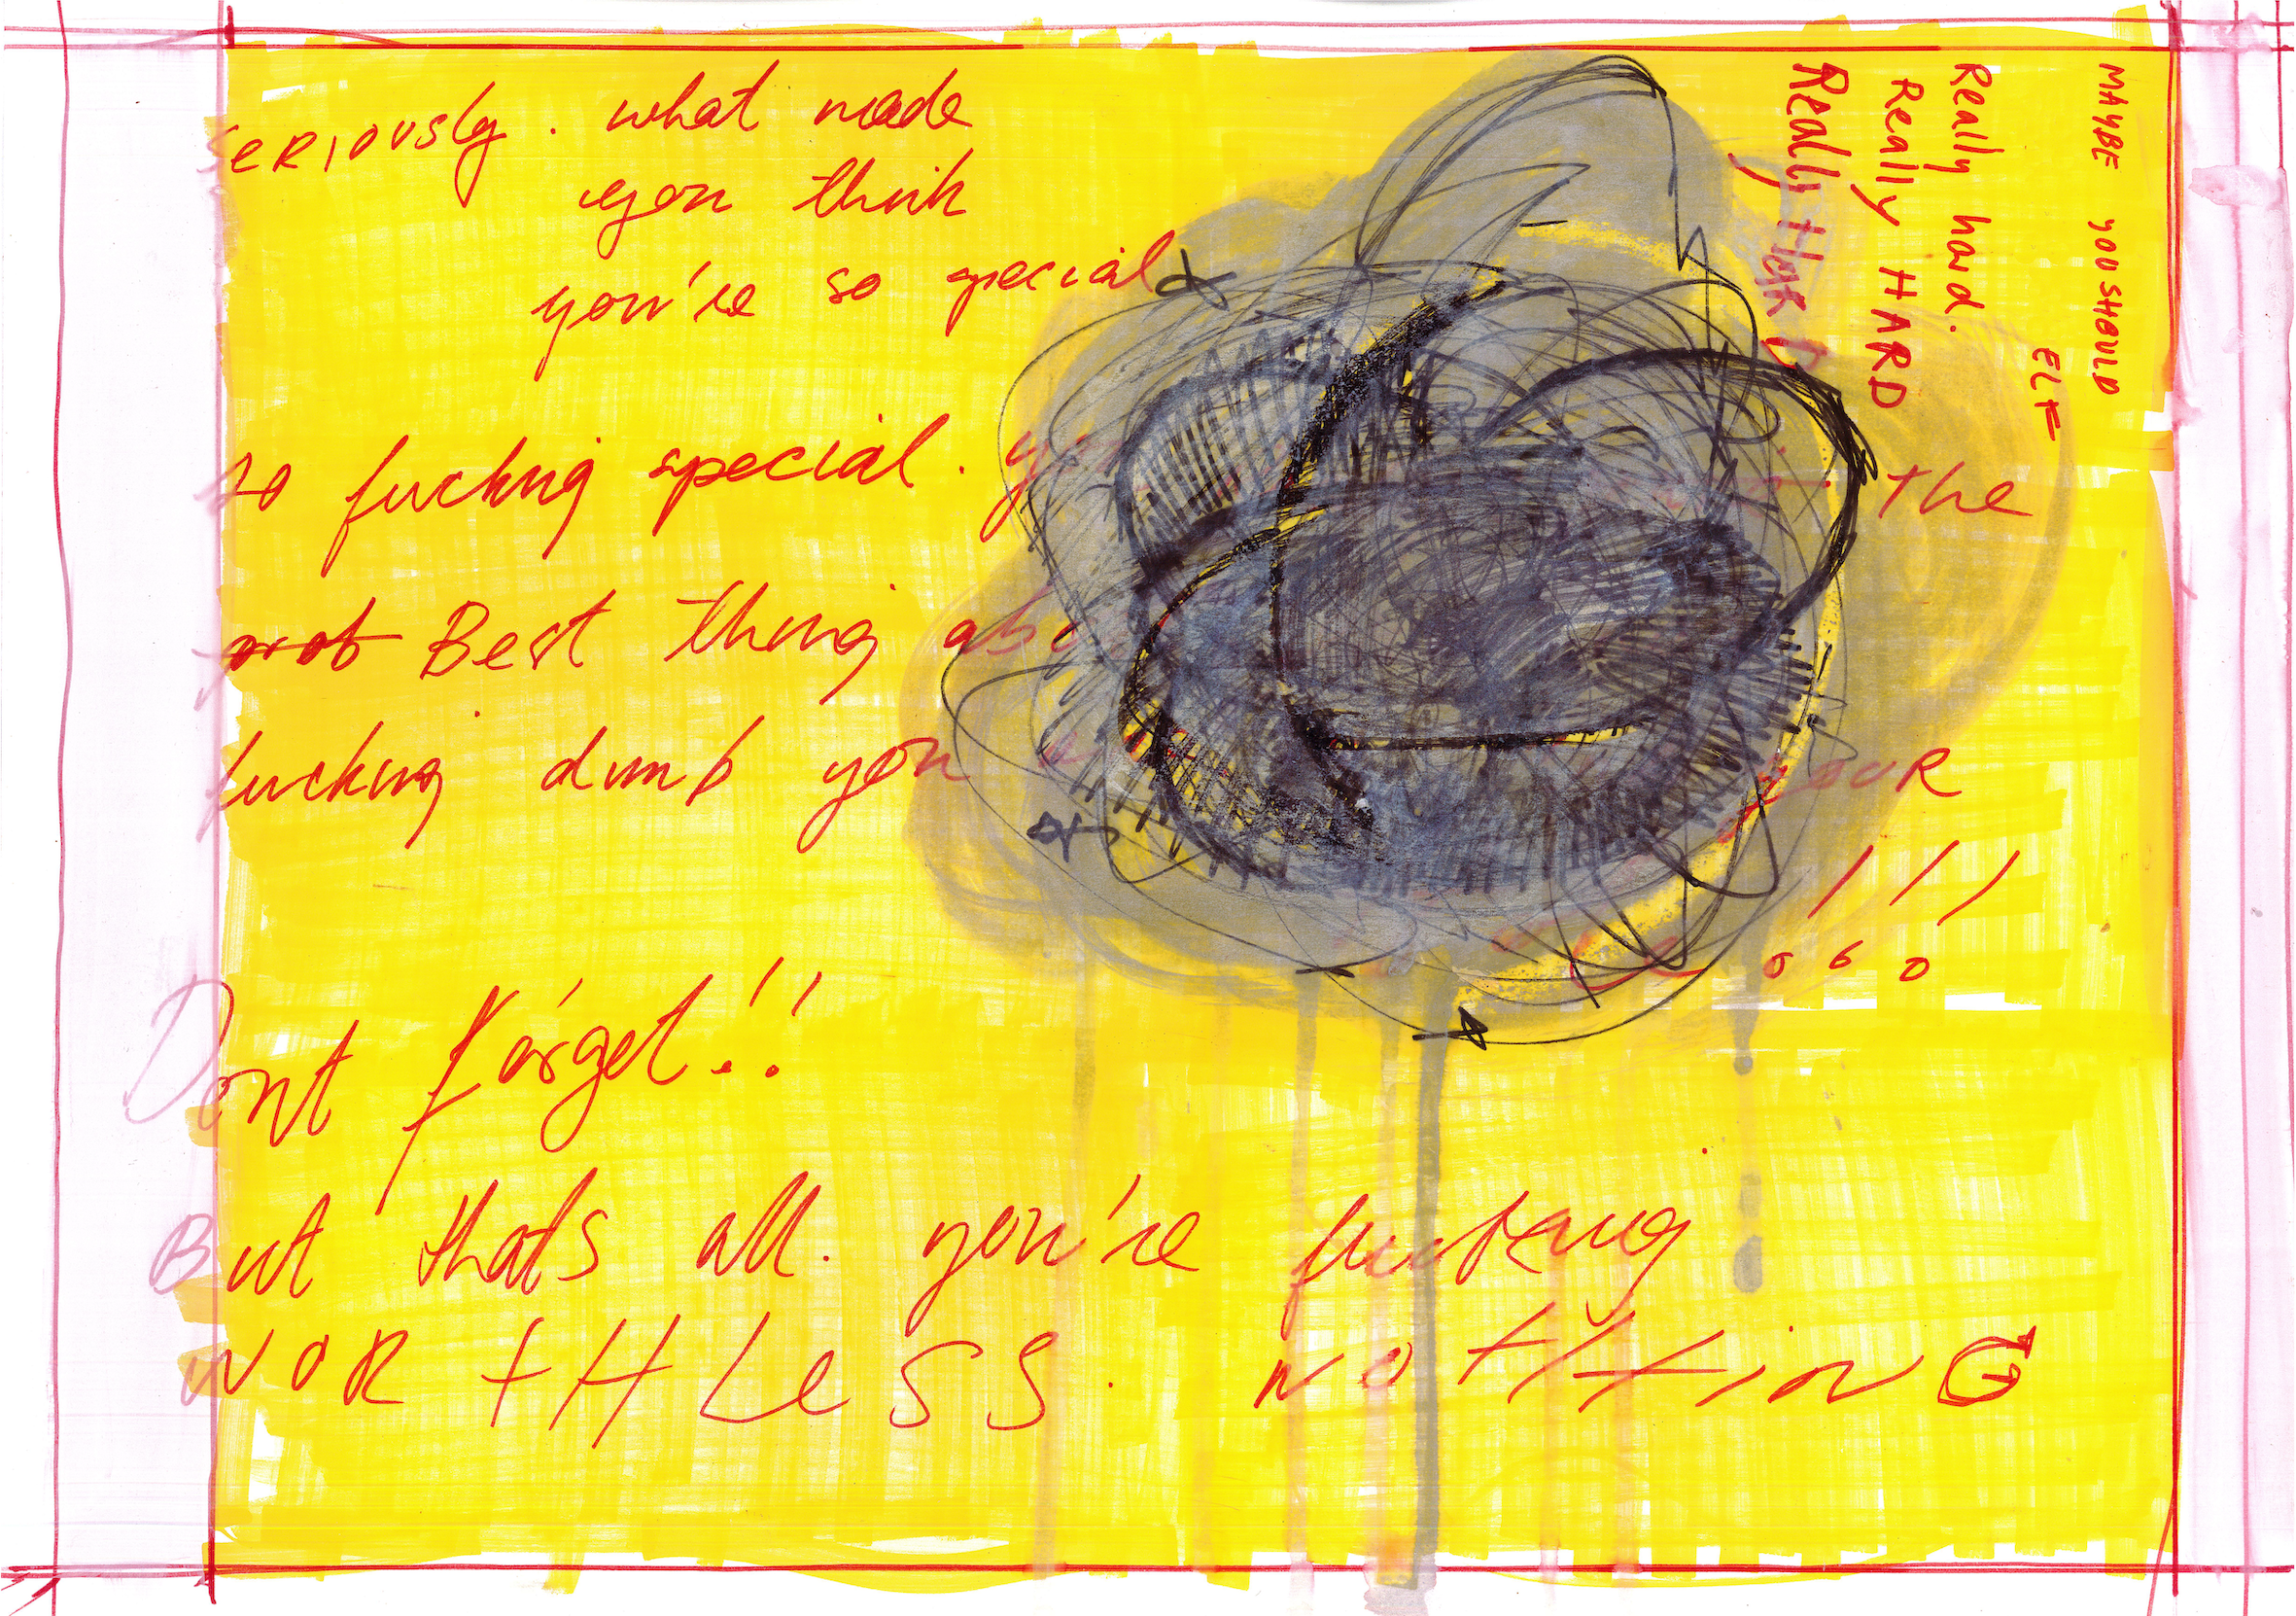 seriously. what made
you think
you're so special
so fucking special. the
prob Best thing abo
fucking dumb you OUR
!!!
Dont forget!!
But thats all. you're fucking
worthless. nothing
MAYBE YOU SHOULD
ELF
Really hard.
Really HARD
Really